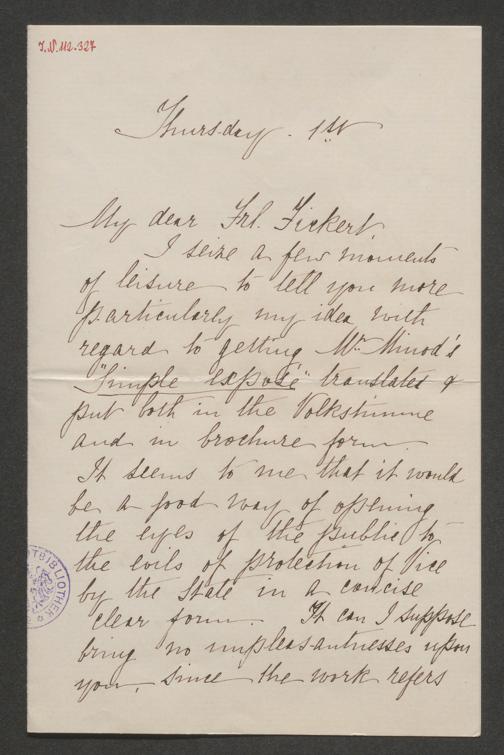 I.N. 112.327
Thursday. 1st
My dear Frl. Fickert,
I seize a few moments
of leisure to tell you more
particularly my idea with
regard to getting Mr. Minod's
"Simple exposé" translated &
put both in the Volkstimme
and in brochure form.
It seems to me that it would
be a good way of opening
the eyes of the public to
the evils of protection of Vice
by the State in a concise
clear form. It can I suppose
bring no unpleasantnesses upon
you, since the work refers
TBIBLIOTHEK